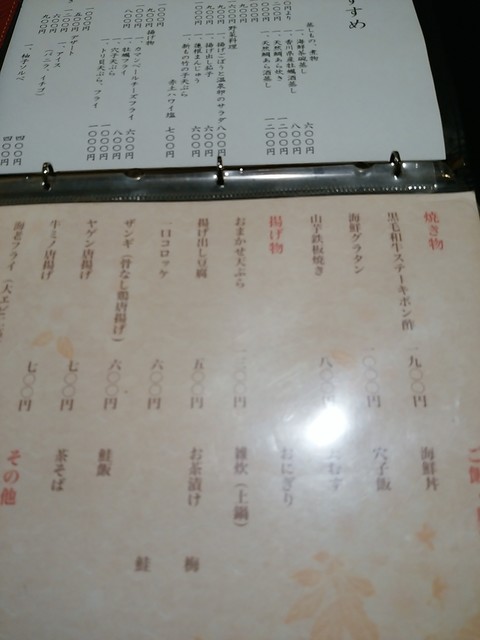 すすめ
蒸しもの・煮物
一、海鮮茶碗蒸し 六〇〇円
一、香川県産牡蠣酒蒸し 八〇〇円
一、天然鯛あら炊き 一二〇〇円
一、天然鯛あら酒蒸し 一二〇〇円
野菜料理
一、揚げごぼうと温泉卵のサラダ 八〇〇円
一、揚げ出し茄子 六〇〇円
一、蓮根まんじゅう 六〇〇円
一、新もの竹の子天ぷら
赤土ハワイ塩 七〇〇円
揚げ物
一、カマンベールチーズフライ 六〇〇円
一、牡蠣フライ
一、穴子天ぷら 八〇〇円
一、トリ貝天ぷら、フライ 一〇〇〇円
デザート
一、アイス
(バニラ、イチゴ) 四〇〇円
一、柚子シャーベ 四〇〇円
焼き物
黒毛和牛ステーキポン酢 一九〇〇円
海鮮グラタン 一〇〇〇円
山芋鉄板焼き 八〇〇円
揚げ物
おまかせ天ぷら
揚げ出し豆腐 五〇〇円
一口コロッケ 六〇〇円
ザンギ(骨なし鶏唐揚げ) 六〇〇円
ヤゲン唐揚げ 七〇〇円
牛ミノ唐揚げ 七〇〇円
海老フライ(大エビ
海鮮丼
穴子飯
おにぎり
雑炊(土鍋)
お茶漬け 梅
鮭
鮭飯
茶そば
その他